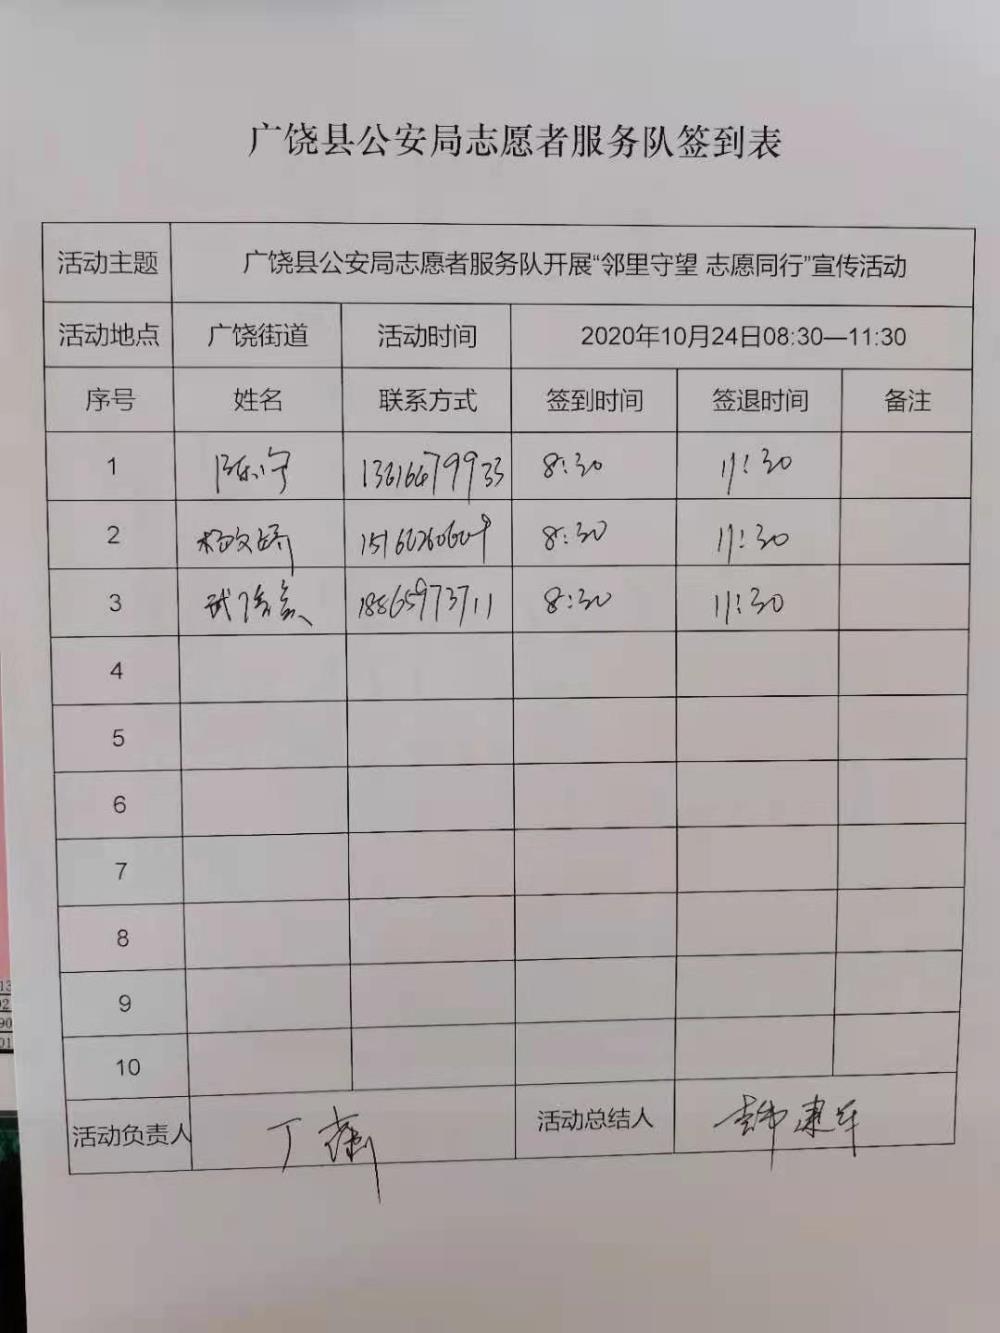 广饶县公安局志愿者服务队签到表
活动主题 广饶县公安局志愿者服务队开展“邻里守望 志愿同行”宣传活动
活动地点 广饶街道 活动时间 2020年10月24日08:30—11:30
序号 姓名 联系方式 签到时间 签退时间 备注
1 陈宁 13616479933 8:30 11:30
2 杨文娇 8:30 11:30
3 18865973711 8:30 11:30
4
5
6
7
8
9
10
活动负责人 丁 活动总结人 韩建军
13
02
90
01